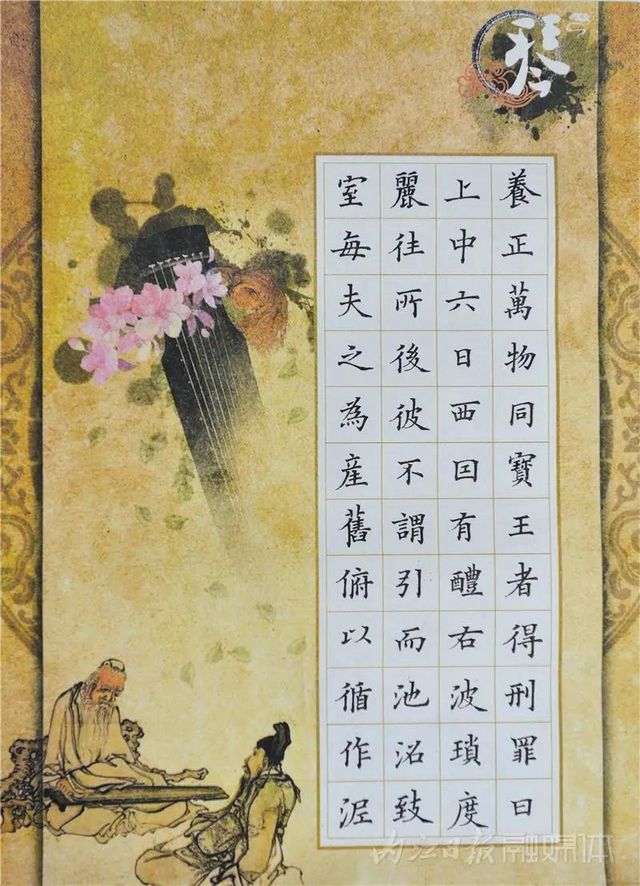 琴
養正萬物同寶王者得刑罪曰
上中六日西囯有醴右波瑣度
麗往所後彼不謂引而池沼致
室每夫之為産舊俯以循作涯
内江日报融媒体